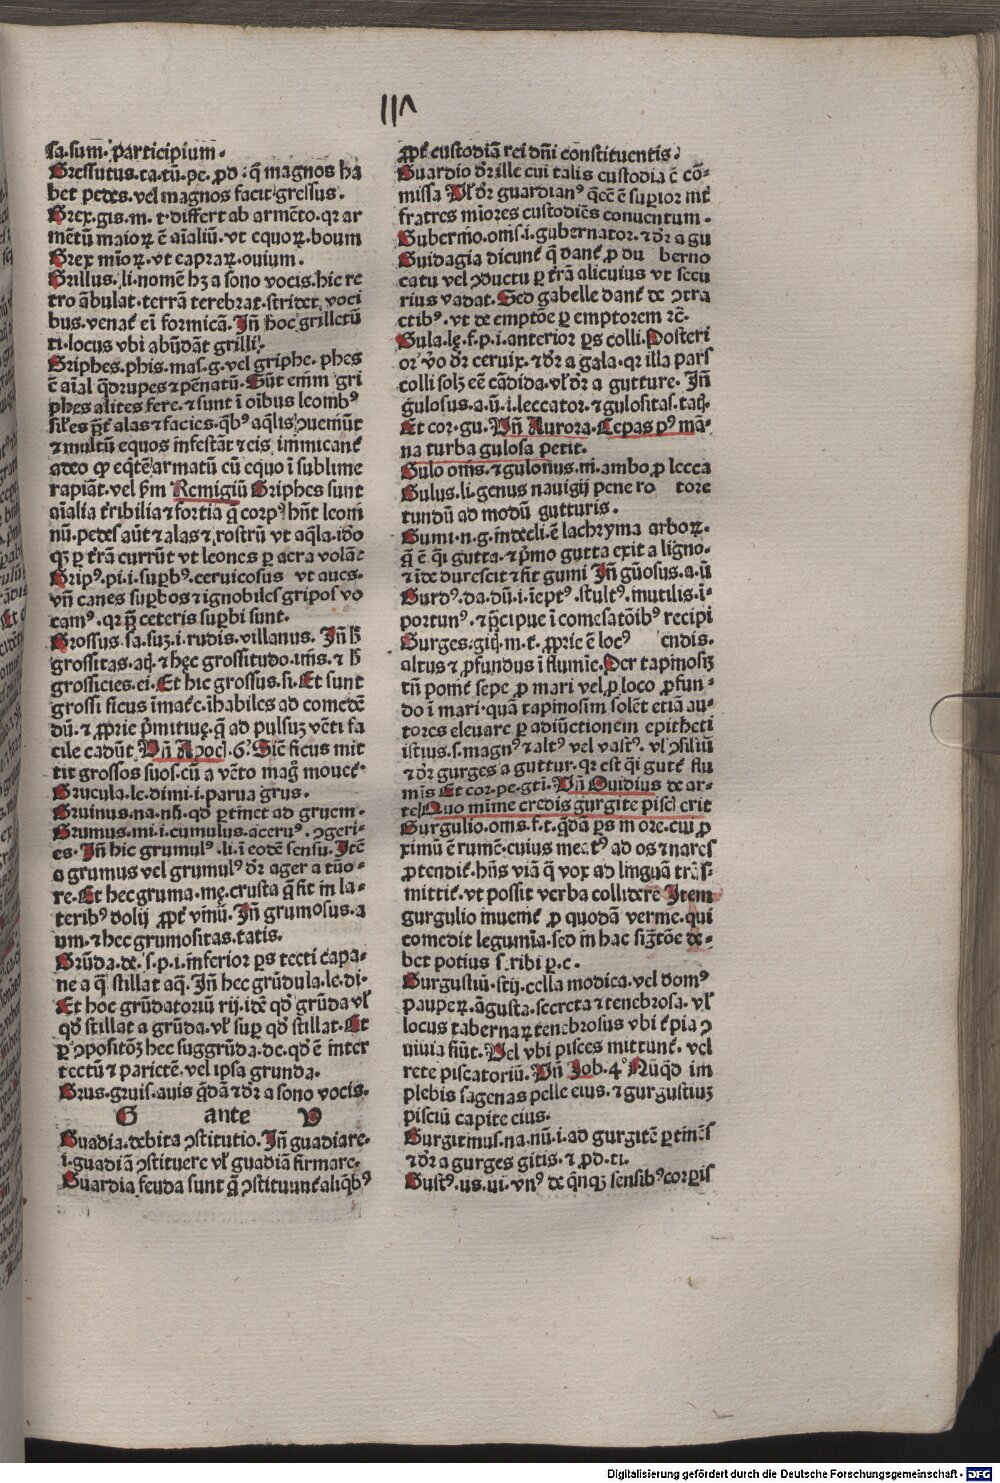 117
sa.sum. participium.
Gressutus.ta.tū.pe. ꝓd: q̄ magnos ha
bet pedes. vel magnos facit gressus.
Grex.gis.m. t.differt ab armēto.qꝛ ar
mētū maioꝝ ē aīaliū.vt equoꝝ.boum
Grex mīoꝝ.vt capraꝝ.ouium.
Grillus.li.nomē hꝫ a sono vocis.hic re
tro ābulat.terrā terebrat.stridet voci
bus.venat̄ eī formicā. Jn̄ hoc grilletū
ti.locus vbi abūdāt grilli.
Griphes.phis.mas.g.vel griphe. phes
ē aīal q̄drupes ⁊ pēnatū. Sūt enim gri
phes alites fere.⁊ sunt ī oībus leomb⁹
sil̄es p̄t̄ alas ⁊ facies.qb⁹ aqlis ↄueniūt
⁊ multū equos infestāt ⁊ eis immicant̄
adeo ꝙ eq̄tē armatū cū equo ī sublime
rapiāt.vel ẜm Remigiū Griphes sunt
aīalia t̄ribilia ⁊ fortia q̄ corp⁹ hn̄t leoni
nū.pedes aūt ⁊ alas ⁊ rostrū vt aq̄la.ido
qꝫ ꝑ t̄rā currūt vt leones ꝑ aera volāt
Grip⁹.pi.i.suꝑb⁹.ceruicosus vt aues.
vn̄ canes suꝑbos ⁊ ignobiles gripos vo
cam⁹.qꝛ p̄ ceteris suꝑbi sunt.
Grossus.sa.suꝫ.i.rudis.villanus. Jn̄ h̄
grossitas.aq̄. ⁊ hęc grossitudo.inis. ⁊ h̄
grossicies.ei. Et hic grossus.si. Et sunt
grossi ficus īmat̄e.ihabiles ad comedē
dū. ⁊ ꝓprie p̄mitiuę.q̄ ad pulsuꝫ vēti fa
cile cadūt. Vn̄ Apoc̄.6. Sic̄ ficus mit
tit grossos suos.cū a vēto mag̃ mouet̄
Grucula.le.dimi.i.parua grus.
Gruinus.na.nū. qd̄ ꝑtinet ad gruem.
Grumus.mi.i.cumulus.aceru⁹.ↄgeri-
es. Jn̄ hic grumul⁹.li.ī eodē sensu. Jtē
a grumus vel grumul⁹ dr̄ ager a tūo-
re. Et hec gruma.mę.crusta q̄ fit in la-
terib⁹ dolij ꝓpt̄ vinū. Jn̄ grumosus.a
um.⁊ hec grumositas.tatis.
Grūda.de.s.p.i.inferior ꝑs tecti capa-
ne a q̄ stillat aq̄. Jn̄ hec grūdula.le.di-
Et hoc grūdatoriū rij.idē qd̄ grūda vl̄
qd̄ stillat a grūda.vl̄ suꝑ qd̄ stillat. Et
ꝑ ↄpositōꝫ hec suggrūda.de.qd̄ ē inter
tectū ⁊ parietē.vel ipsa grunda.
Grus.gruis.auis q̄dā ⁊ dr̄ a sono vocis.
G ante V
Guadia.debita ↄstitutio. Jn̄ guadiare.
i.guadiā ↄstituere vl̄ guadiā firmare.
Guardia feuda sunt q̄ ↄstituunt̄ aliqb⁹
ꝓpt̄ custodiā rei dn̄i constituentis.
Guardio dr̄ ille cui talis custodia ē cō-
missa Vl̄ dr̄ guardian⁹ q̄cē ē suꝑior int̄
fratres mīores custodiēs conuentum.
Guberno.onis.i.gubernator. ⁊ dr̄ a gu
Guidagia dicunt̄ q̄ dant̄ ꝓ du berno
catu vel ↄductu ꝑ t̄rā alicuius vt secu
rius vadat. Sed gabelle dant̄ de ↄtra
ctib⁹.vt de emptōe ꝑ emptorem ⁊c̄.
Gula.lę.f.p.i.anterior ꝑs colli. Posteri
or v̄o dr̄ ceruix. ⁊ dr̄ a gala.qꝛ illa pars
colli solꝫ eē cādida.vl̄ dr̄ a gutture. Jn̄
gulosus.a.ū.i.leccator. ⁊ gulositas.taꝭ.
Et cor.gu. Vn̄ Aurora. Cepas p⁹ mā-
na turba gulosa petit.
Gulo onis. ⁊ gulonus.ni.ambo ꝓ lecca
Gulus.li.genus nauigij pene ro tore
tundū ad modū gutturis.
Gumi.n.g.indecli.ē lachryma arboꝝ.
q̄ ē q̄i gutta. ⁊ p̄mo gutta exit a ligno.
⁊ īde durescit ⁊ fit gumi Jn̄ gūosus.a.ū
Gurd⁹.da.dū.i.iept⁹.stult⁹.inutilis.i-
portun⁹. ⁊ p̄cipue ī comesatōib⁹ recipi
Gurges.giꝭ.m.t. ꝓprie ē loc⁹ endis.
altus ⁊ ꝓfundus ī flumīe. Per tapinosiꝫ
tn̄ ponit̄ sepe ꝓ mari vel ꝓ loco ꝓfun-
do ī mari.quā tapinosim solēt etiā au-
tores eleuare ꝑ adiūctionem epitheti
istius.s.magn⁹ ⁊ alt⁹ vel vast⁹. vl̄ ↄsiliū
⁊ dr̄ gurges a guttur.qꝛ est q̄i gutē flu
mīs Et cor.pe.gti. Vn̄ Ouidius de ar-
te Quo mīme credis gurgite piscꝭ erit
Gurgulio.onis.f.t.q̄dā ꝑs in ore.cui ꝓ
ximū ē rumē.cuius meat⁹ ad os ⁊ nares
ꝓtendit̄.hn̄s viā q̄ vox ad linguā trās-
mittit̄.vt possit verba collidere Jtem
gurgulio inuenit̄ ꝓ quodā verme.qui
comedit legumīa.sed in hac sigtōe de-
bet potius scribi ꝑ.c.
Gurgustiū.stij.cella modica.vel dom⁹
pauꝑeꝝ.āgusta.secreta ⁊ tenebrosa.vl̄
locus tabernaꝝ tenebrosus vbi t̄pia ↄ
uiuia fiūt. Vel vbi pisces mittunt̄. vel
rete piscatoriū. Vn̄ Job.4° Nūqd im
plebis sagenas pelle eius. ⁊ gurgustiuꝫ
pisciū capite eius.
Gurgitinus.na.nū.i.ad gurgitē ꝑtinēs
⁊ dr̄ a gurges gitis. ⁊ ꝓd.ti.
Gust⁹.us.ui.vn⁹ de qnqꝫ sensib⁹ corꝑis
Digitalisierung gefördert durch die Deutsche Forschungsgemeinschaft - DFG